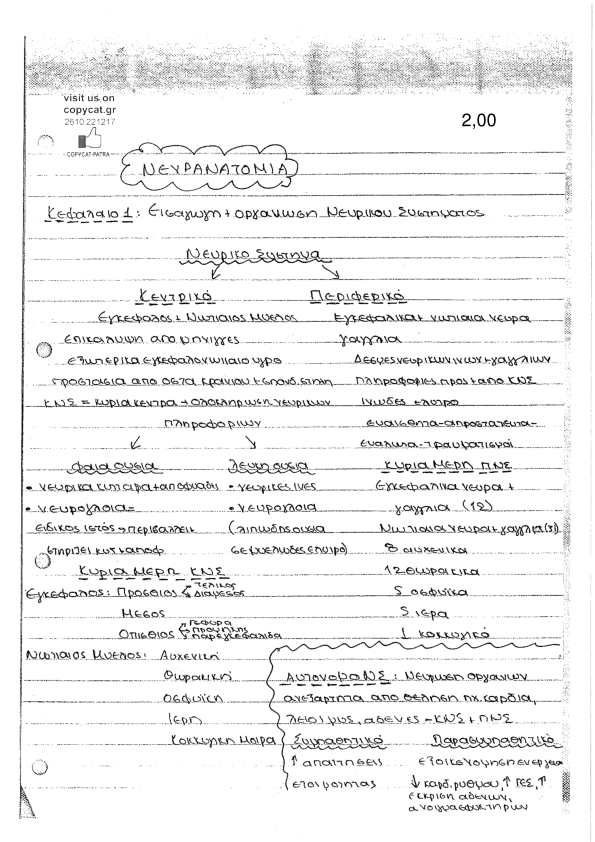 visit us on
copycat.gr
2610 221217
COPYCAT-PATRA
2,00
ΝΕΥΡΑΝΑΤΟΜΙΑ
Κεφαλαιο 1: Εισαγωγη + οργανωση Νευρικου Συστηματος
Νευρικο Συστημα
Κεντρικό Περιφερικό
Εγκεφαλος + Νωτιαιος Μυελος
επικαλυψη απο μηνιγγες
εξωτερικα εγκεφαλονωτιαιο υγρο
προστασια απο οστα κρανιου + σπονδ. στηλη
ΚΝΣ = κυρια κεντρα → ολοκληρωση νευρικων
πληροφοριων
Εγκεφαλικα + νωτιαια νευρα
γαγγλια
Δεσμες νευρικων ινων + γαγγλιων
πληροφοριες προς + απο ΚΝΣ
ινωδες ελυτρο
ευαισθητα - απροστατευτα -
ευαλωτα - τραυματισμοι
Φαια ουσια
• νευρικα κυτταρα + αποφυαδες
• νευρογλοια =
ειδικος ιστός → περιβαλλει +
στηριζει κυτ + αποφ.
Λευκη ουσια
• νευρικες ινες
• νευρογλοια
(λιπωδης ουσια
σε μυελωδες ελυτρο)
Κυρια Μερη ΠΝΣ
Εγκεφαλικα νευρα +
γαγγλια (12)
Νωτιαια νευρα + γαγγλια (31)
8 αυχενικα
12 θωρακικα
5 οσφυϊκα
5 ιερα
1 κοκκυγικό
Κυρια Μερη ΚΝΣ
Εγκεφαλος: Προσθιος τελικος
διαμεσος
Μεσος
Οπισθιος γεφυρα
προμηκης
παρεγκεφαλιδα
Νωτιαιος Μυελος: Αυχενικη
Θωρακικη
Οσφυϊκη
Ιερη
Κοκκυγικη Μοιρα
Αυτονομο ΝΣ: Νευρωση οργανων
ανεξαρτητα απο θεληση πχ. καρδια,
λειοι μυς, αδενες - ΚΝΣ + ΠΝΣ
Συμπαθητικό Παρασυμπαθητικό
↑ απαιτησεις
ετοιμοτητας
εξοικονομηση ενεργεια
↓ καρδ. ρυθμου, ↑ ΓΕΣ, ↑
εκκριση αδενων,
ανοιγμα σφιγκτηρων